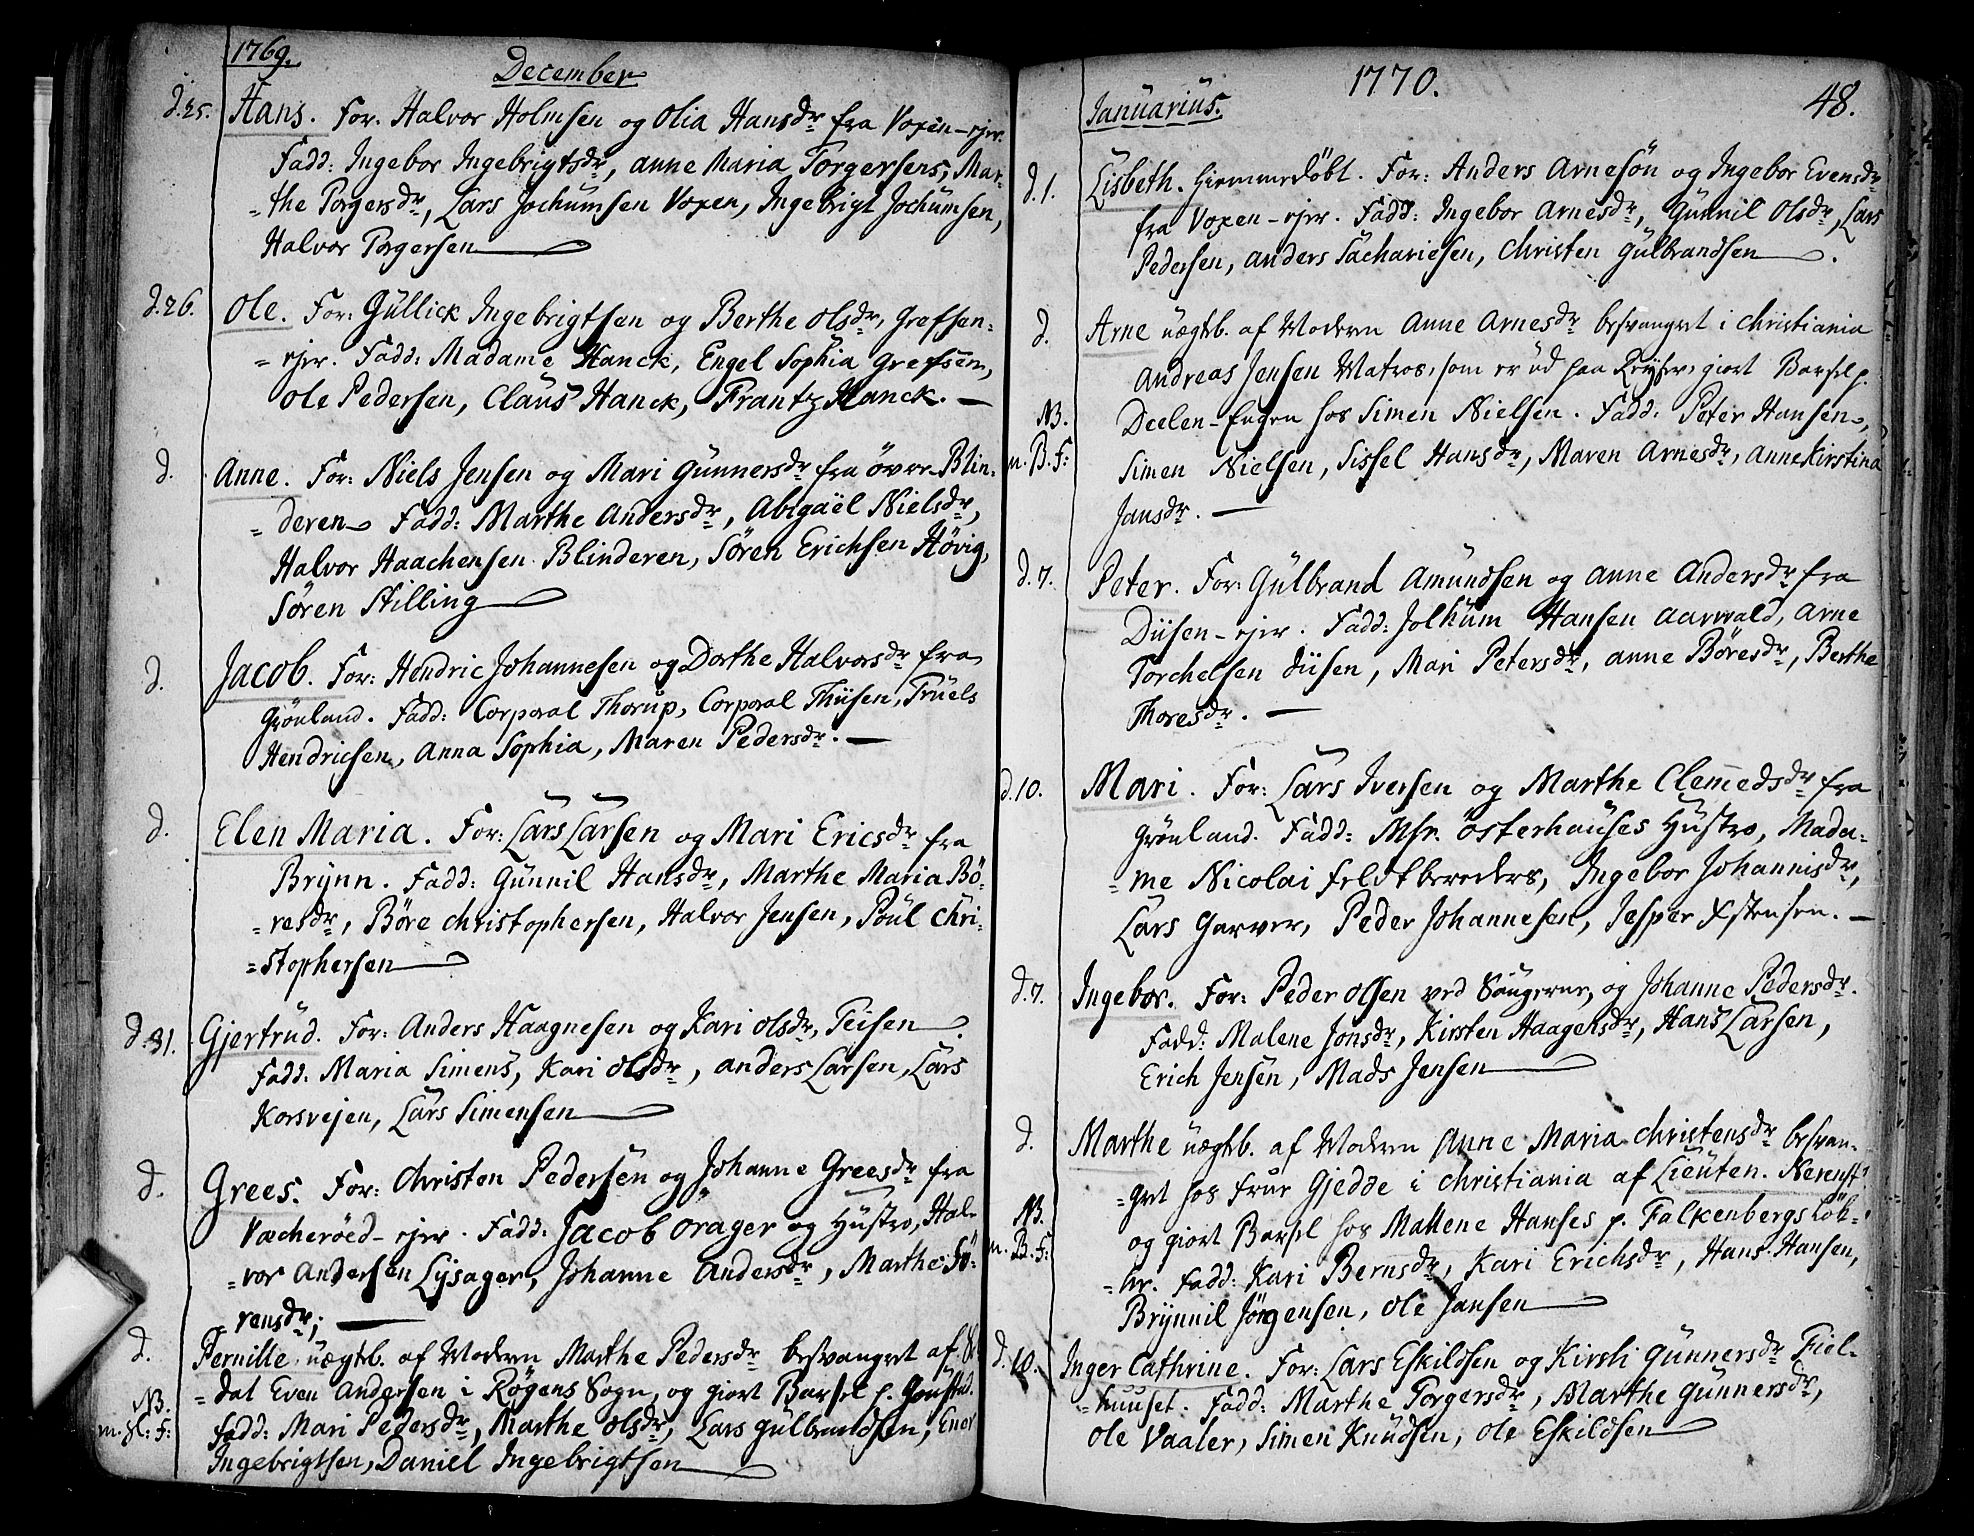 1769.
December
d. 25. Hans. For. Halvor Holmsen og Olia Hansdr fra Voxen-ejer.
Fadd: Ingebor Ingebrigtsdr, anne Maria Torgersens, Mar-
=the Torgersdr, Lars Jochumsen Voxen, Ingebrigt Jochumsen,
Halvor Torgersen
d. 26. Ole. For: Güllick Ingebrigtsen og Berthe Olsdr, Grefsen=
=ejer. Fadd: Madame Hanck, Engel Sophia Grefsen,
Ole Pedersen, Claus Hanck, Frantz Hanck. —
d. Anne. For: Niels Jensen og Mari Gunnersdr fra övre Blin=
=deren Fadd: Marthe Andersdr, Abigaël Nielsdr,
Halvor Haachensen Blinderen, Sören Erichsen Hövig,
Sören Stilling
d. Jacob. For: Hendric Johannesen og Dorthe Halvorsdr fra
Grönland. Fadd: Corporal Thorup, Corporal Thiisen, Truels
Hendricsen, Anna Sophia, Maren Pedersdr. —
d. Elen Maria. For: Lars Larsen og Mari Ericsdr fra
Brynn. Fadd: Gunnil Hansdr, Marthe Maria Bö=
=resdr, Böre Christophersen, Halvor Jensen, Poul Chri=
=stophersen
d. 31. Gjertrud. For: Anders Haagnesen og Kari Olsdr, Teisen.
Fadd: Maria Simens, Kari Olsdr, anders Larsen, Lars
Korsvejen, Lars Simensen
d. Grees. For: Christen Pedersen og Johanne Greesdr fra
Væcheröed-ejer. Fadd: Jacob Örager og Hustro, Hal-
=vor Andersen Lysager, Johanne Andersdr, Marthe Sö=
=rensdr; —
d. Pernille uægtb. af Moderen Marthe Pedersdr besvangret af Sol
NB. =dat Even Andersen i Rögens Sogn, og giort Barsel p.
m. H: F: Fadd: Mari Pedersdr, Marthe Olsdr, Lars Gulbrandsen, Ener
Ingebrigtsen, Daniel Ingebrigtsen
1770.
48.
Januarius.
d. 1. Lisbeth. Hiemmedöbt. For: Anders Arnesön og Ingebor Evensdr
fra Voxen-ejer. Fadd: Ingebor Arnesdr, Gunnil Olsdr, Lars
Pedersen, anders Sachariesen, Christen Gulbrandsen.
d. Arne uægtb. af Moderen Anne Arnesdr besvangret i Christiania
Andreas Jensen Matros, som er ud paa Reyser, giort Barsel p.
NB. Deelen-Engen hos Simen Nielsen. Fadd: Peter Hansen,
m. B. F: Simen Nielsen, Sissel Hansdr, Maren Arnesdr, Anne Kirstina
Jansdr. —
d. 7. Peter. For: Gulbrand Amundsen og anne Andersdr fra
Diisen-ejer. Fadd: Jolkum Hansen Aarvold, Arne
Torchelsen Diisen, Mari Petersdr, anne Böresdr, Berthe
Thoresdr. —
d. 10. Mari. For: Lars Iversen og Marthe Clemedsdr fra
Grönland. Fadd: Msr. Österhauses Hustro, Mada=
=me Nicolai Feldtbereders, Ingebor Johannisdr,
Lars Garver, Peder Johannesen, Jesper Xstensen. —
d. 7. Ingebor. For: Peder Olsen ved Saugerne, og Johanne Pedersdr.
Fadd: Malene Jonsdr, Kirsten Haagensdr, Hans Larsen,
Erich Jensen, Mads Jensen
d. Marthe uægtb. af Moderen Anne Maria Christensdr besvan-
=gret hos Frue Gjedde i Christiania af Lieuten.
NB. og giort Barsel hos Mallene Hanses p. Falkenbergs Lök=
m. B. F: =ker. Fadd: Kari Bernsdr, Kari Erichsdr, Hans Hansen,
Brynnil Jörgensen, Ole Jansen
d. 10. Inger Cathrine. For: Lars Eskildsen og Kirsti Gunnersdr Fiel-
=huuset. Fadd: Marthe Torgersdr, Marthe Gunnersdr,
Ole Vaaler, Simen Knudsen, Ole Eskildsen